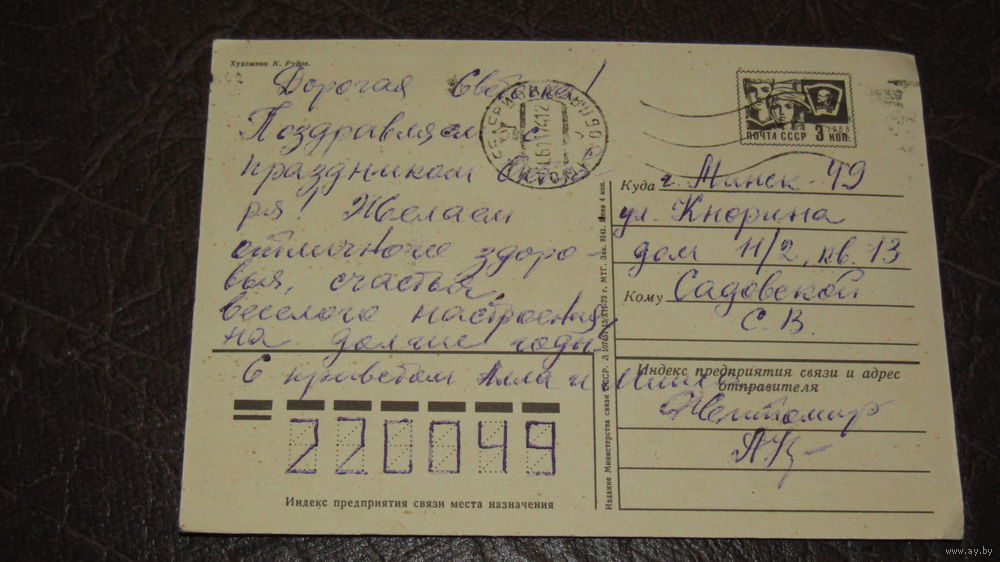 Художник К. Рудов.
Дорогая Света!
Поздравляем с
праздником Октяб
ря! Желаем
отличного здоро-
вья, счастья,
веселого настроения
на долгие годы.
С приветом Алла и
220049
Индекс предприятия связи места назначения
ПОЧТА СССР 3 КОП.
1966
Куда г. Минск-49
ул. Кнорина
дом 11/2, кв. 13
Кому Садовской
С. В.
Индекс предприятия связи и адрес
отправителя
Житомир
Издание Министерства связи СССР.
МТГ. Зак. 8141. Цена 4 коп.
www.ay.by